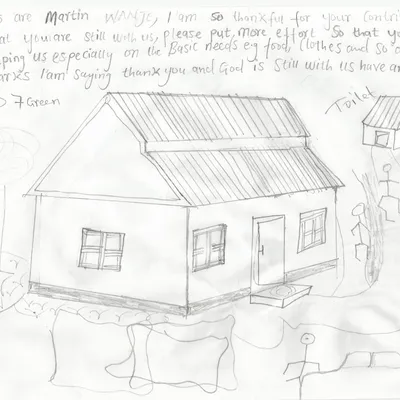 s are Martin WANJE, I am so thankful for your Contri
at you are still with us, please put more effort So that yo
ping us especially on the Basic needs eg food, clothes and so o
orks I am saying thank you and God is still with us have a
7 Green
Toilet